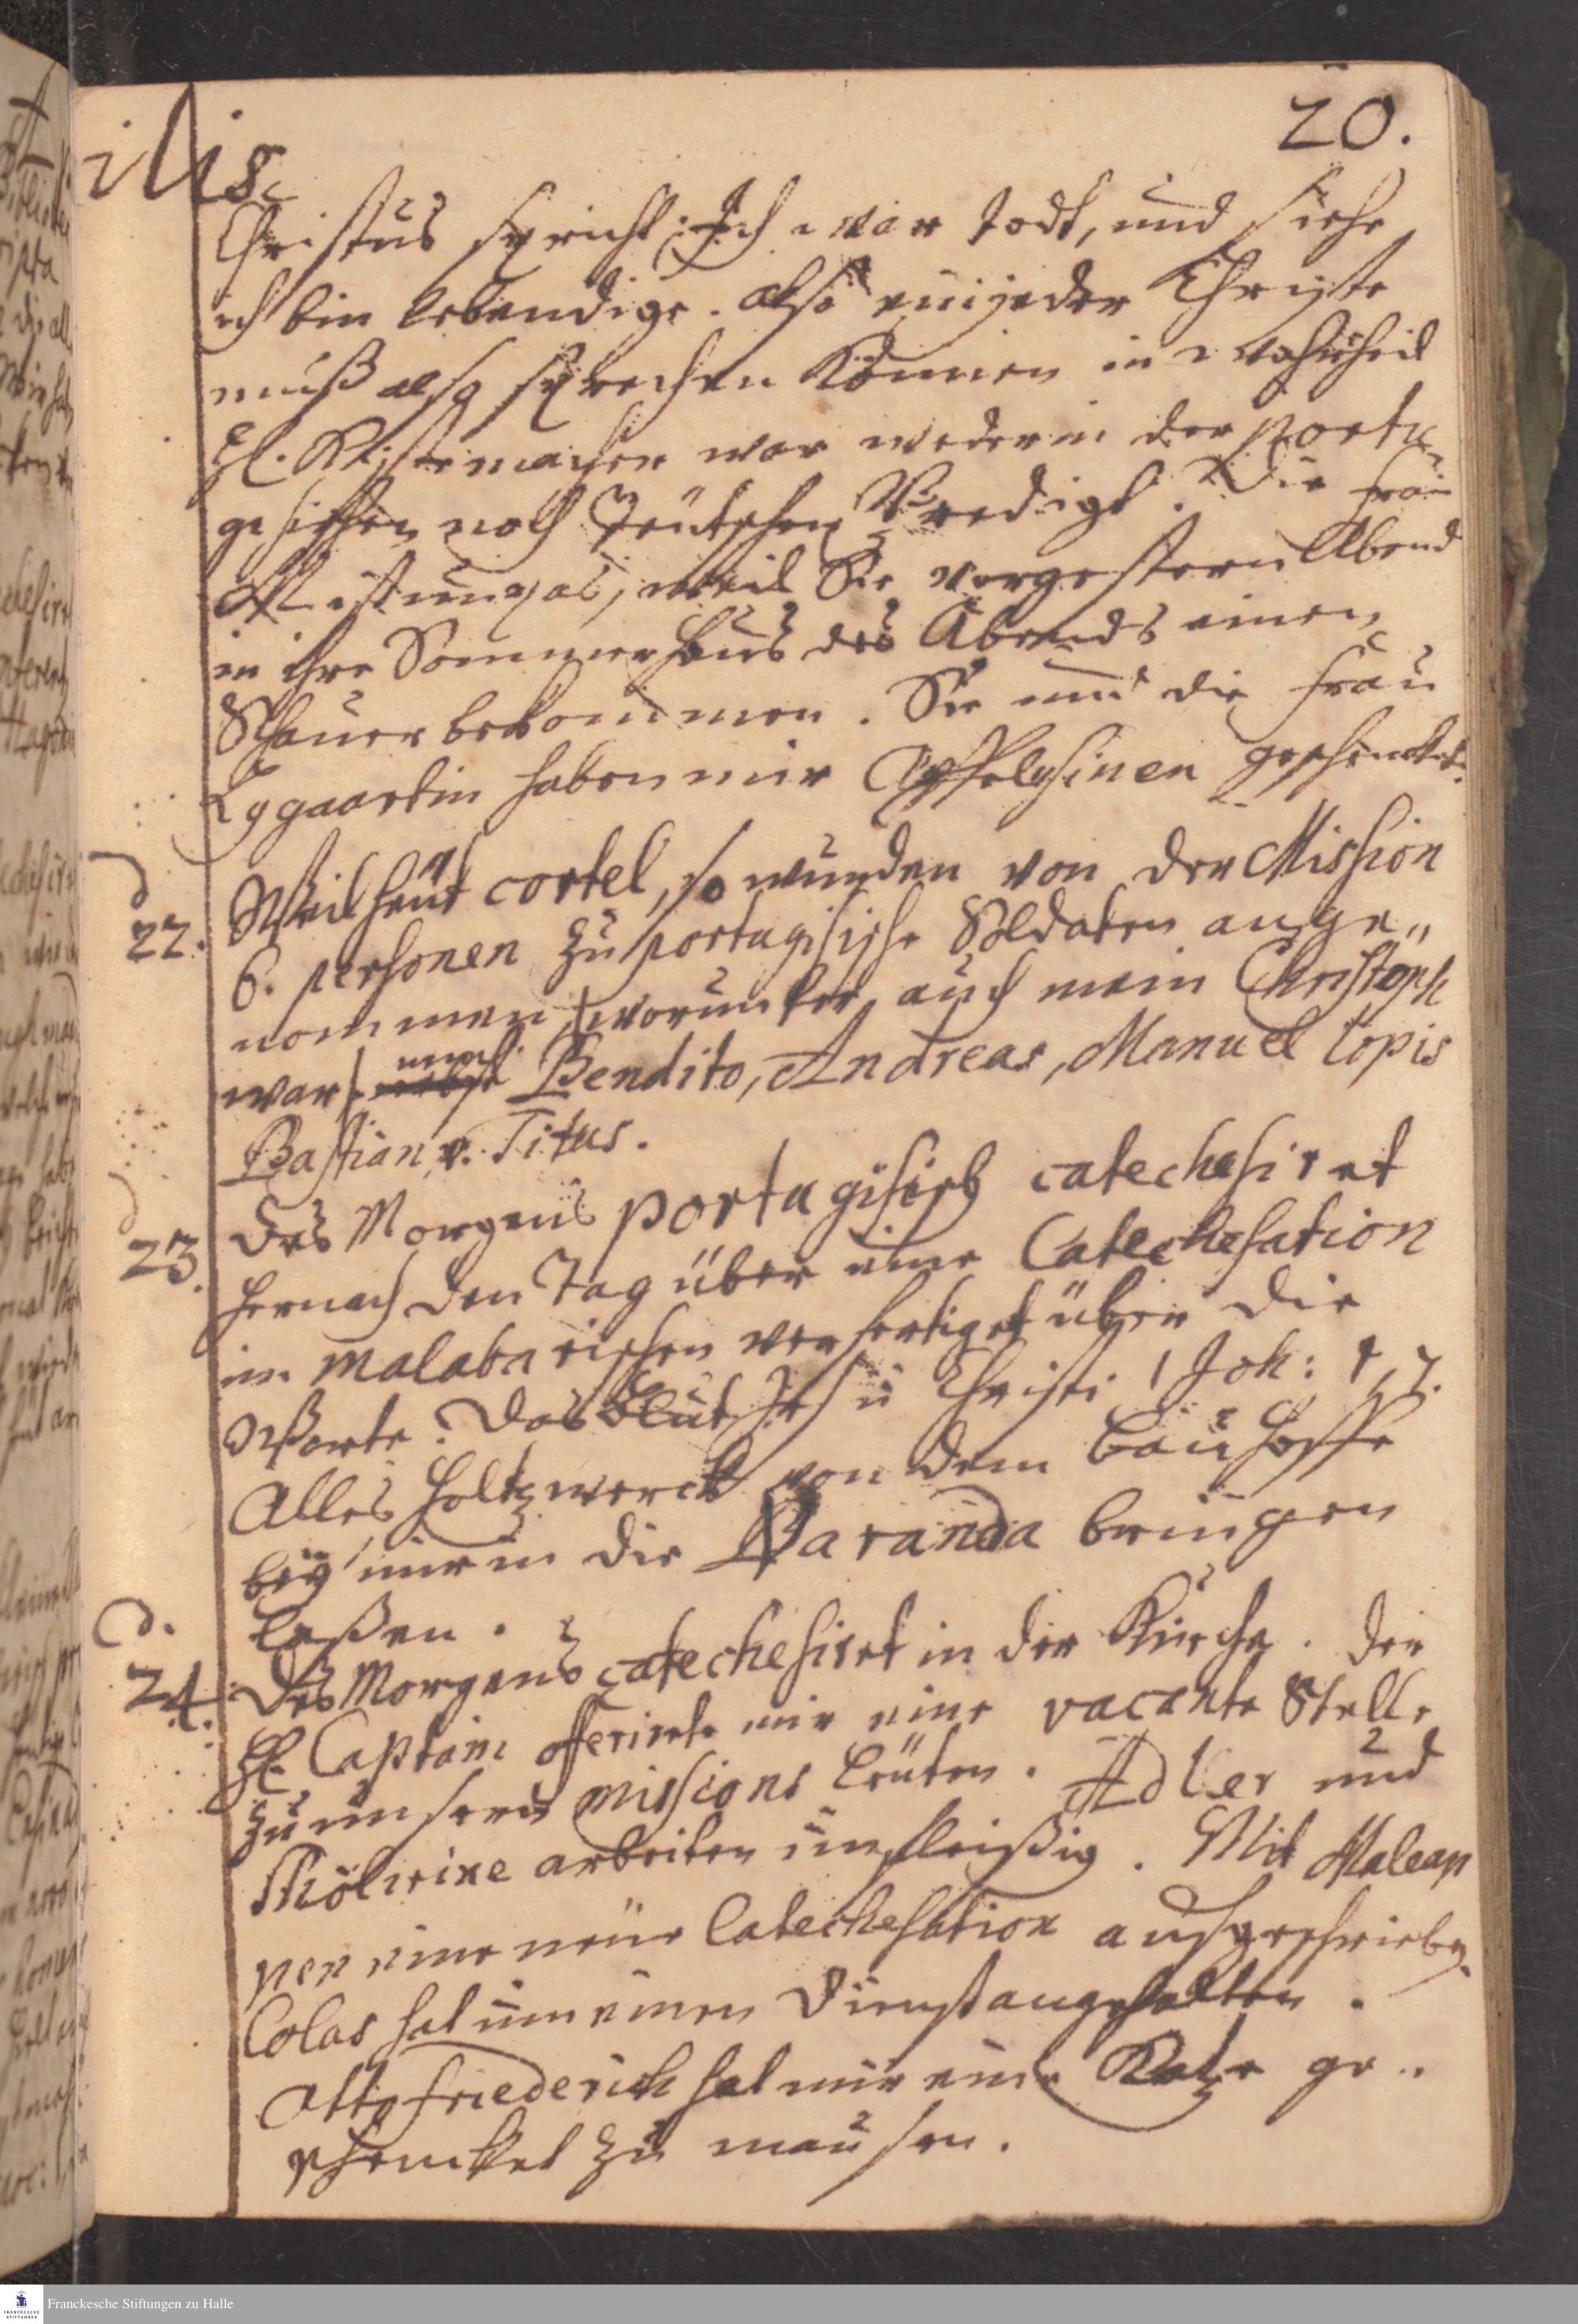 20.
ilis
Christus spricht: Ich war todt, und siehe
ich bin lebendige. also ein jeder Christe
muß also sprechen können in wahrheit
H. Kistemacher war weder in der portu
gisischen noch Teutschen Predigt. Die frau
weil Sie vorgestern Abend
in ihre Sommerhaus des Abends einen
Schauer bekommen. Sie und die frau
Eggaartin haben mir Apffelsinen geschencket.
d
22. Weil heut cortel, so wurden von der Mission
6. personen zu portugisische Soldaten ange„
nommen, worunter auch mein Christoph
war, Bendito, Andreas, Manuel Lopis
Bastian, v. Titus.
d
23. Des Morgens portugisisch catechesiret
hernach den Tag über eine Catechesation
im malabarischen verfertiget über die
Worte: Das Blut Jesu Christi 1 Joh: 1, 7.
Alles holtzwerck von dem Bauhoffe
bey mir in die Baranda bringen
laßen.
d.
24. Des Morgens catechesiret in der Kirche. Der
H. Captain offerirte mir eine vacante Stelle
zu unsern missions Leuten. Adler und
arbeiten unfleißig. Mit Maleap
pen eine neue Catechesation ausgeschrieben.
Colas hat um einen Dienst angehalten.
Otto friederich hat mir eine Katze ge„
schencket zu mausen.
Franckesche Stiftungen zu Halle